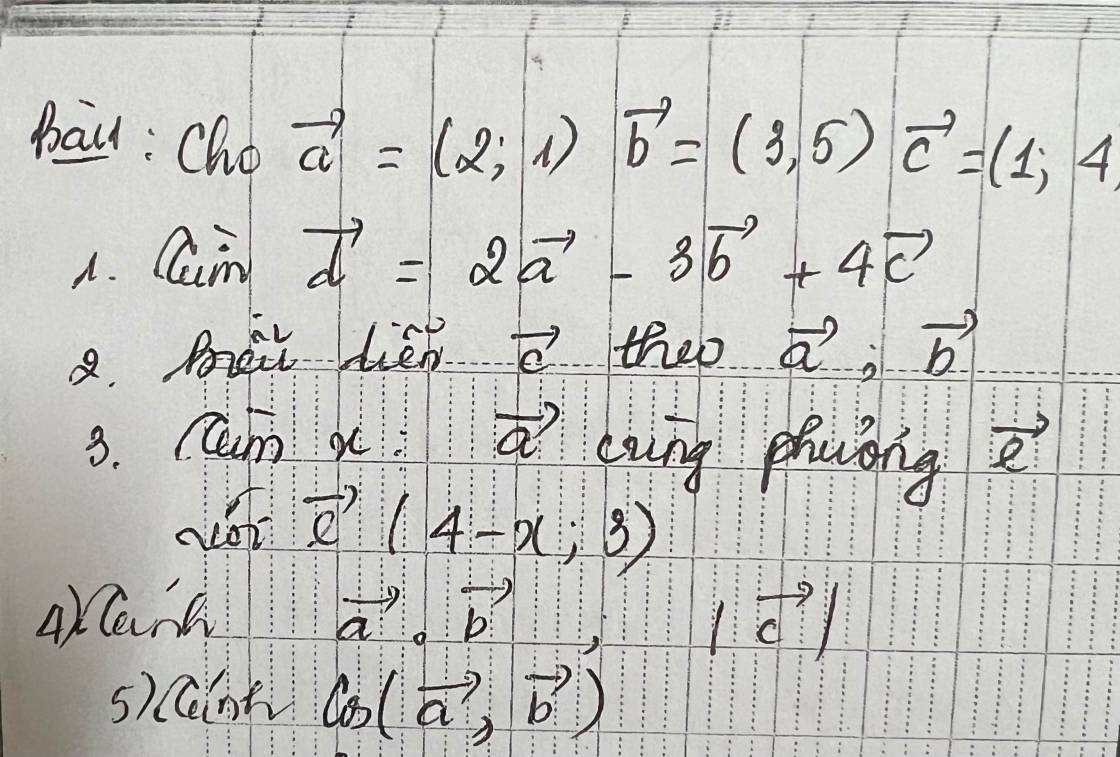 Bài 1: Cho a⃗ = (2; 1) b⃗ = (3,5) c⃗ = (1; 4
1. Tìm d⃗ = 2a⃗ - 3b⃗ + 4c⃗
2. biểu diễn c⃗ theo a⃗ ; b⃗
3. Tìm x: a⃗ cùng phương e⃗
với e⃗ ( 4-x ; 3)
4) Tính a⃗ . b⃗ , | c⃗ |
5) Tính Cos( a⃗ , b⃗ )